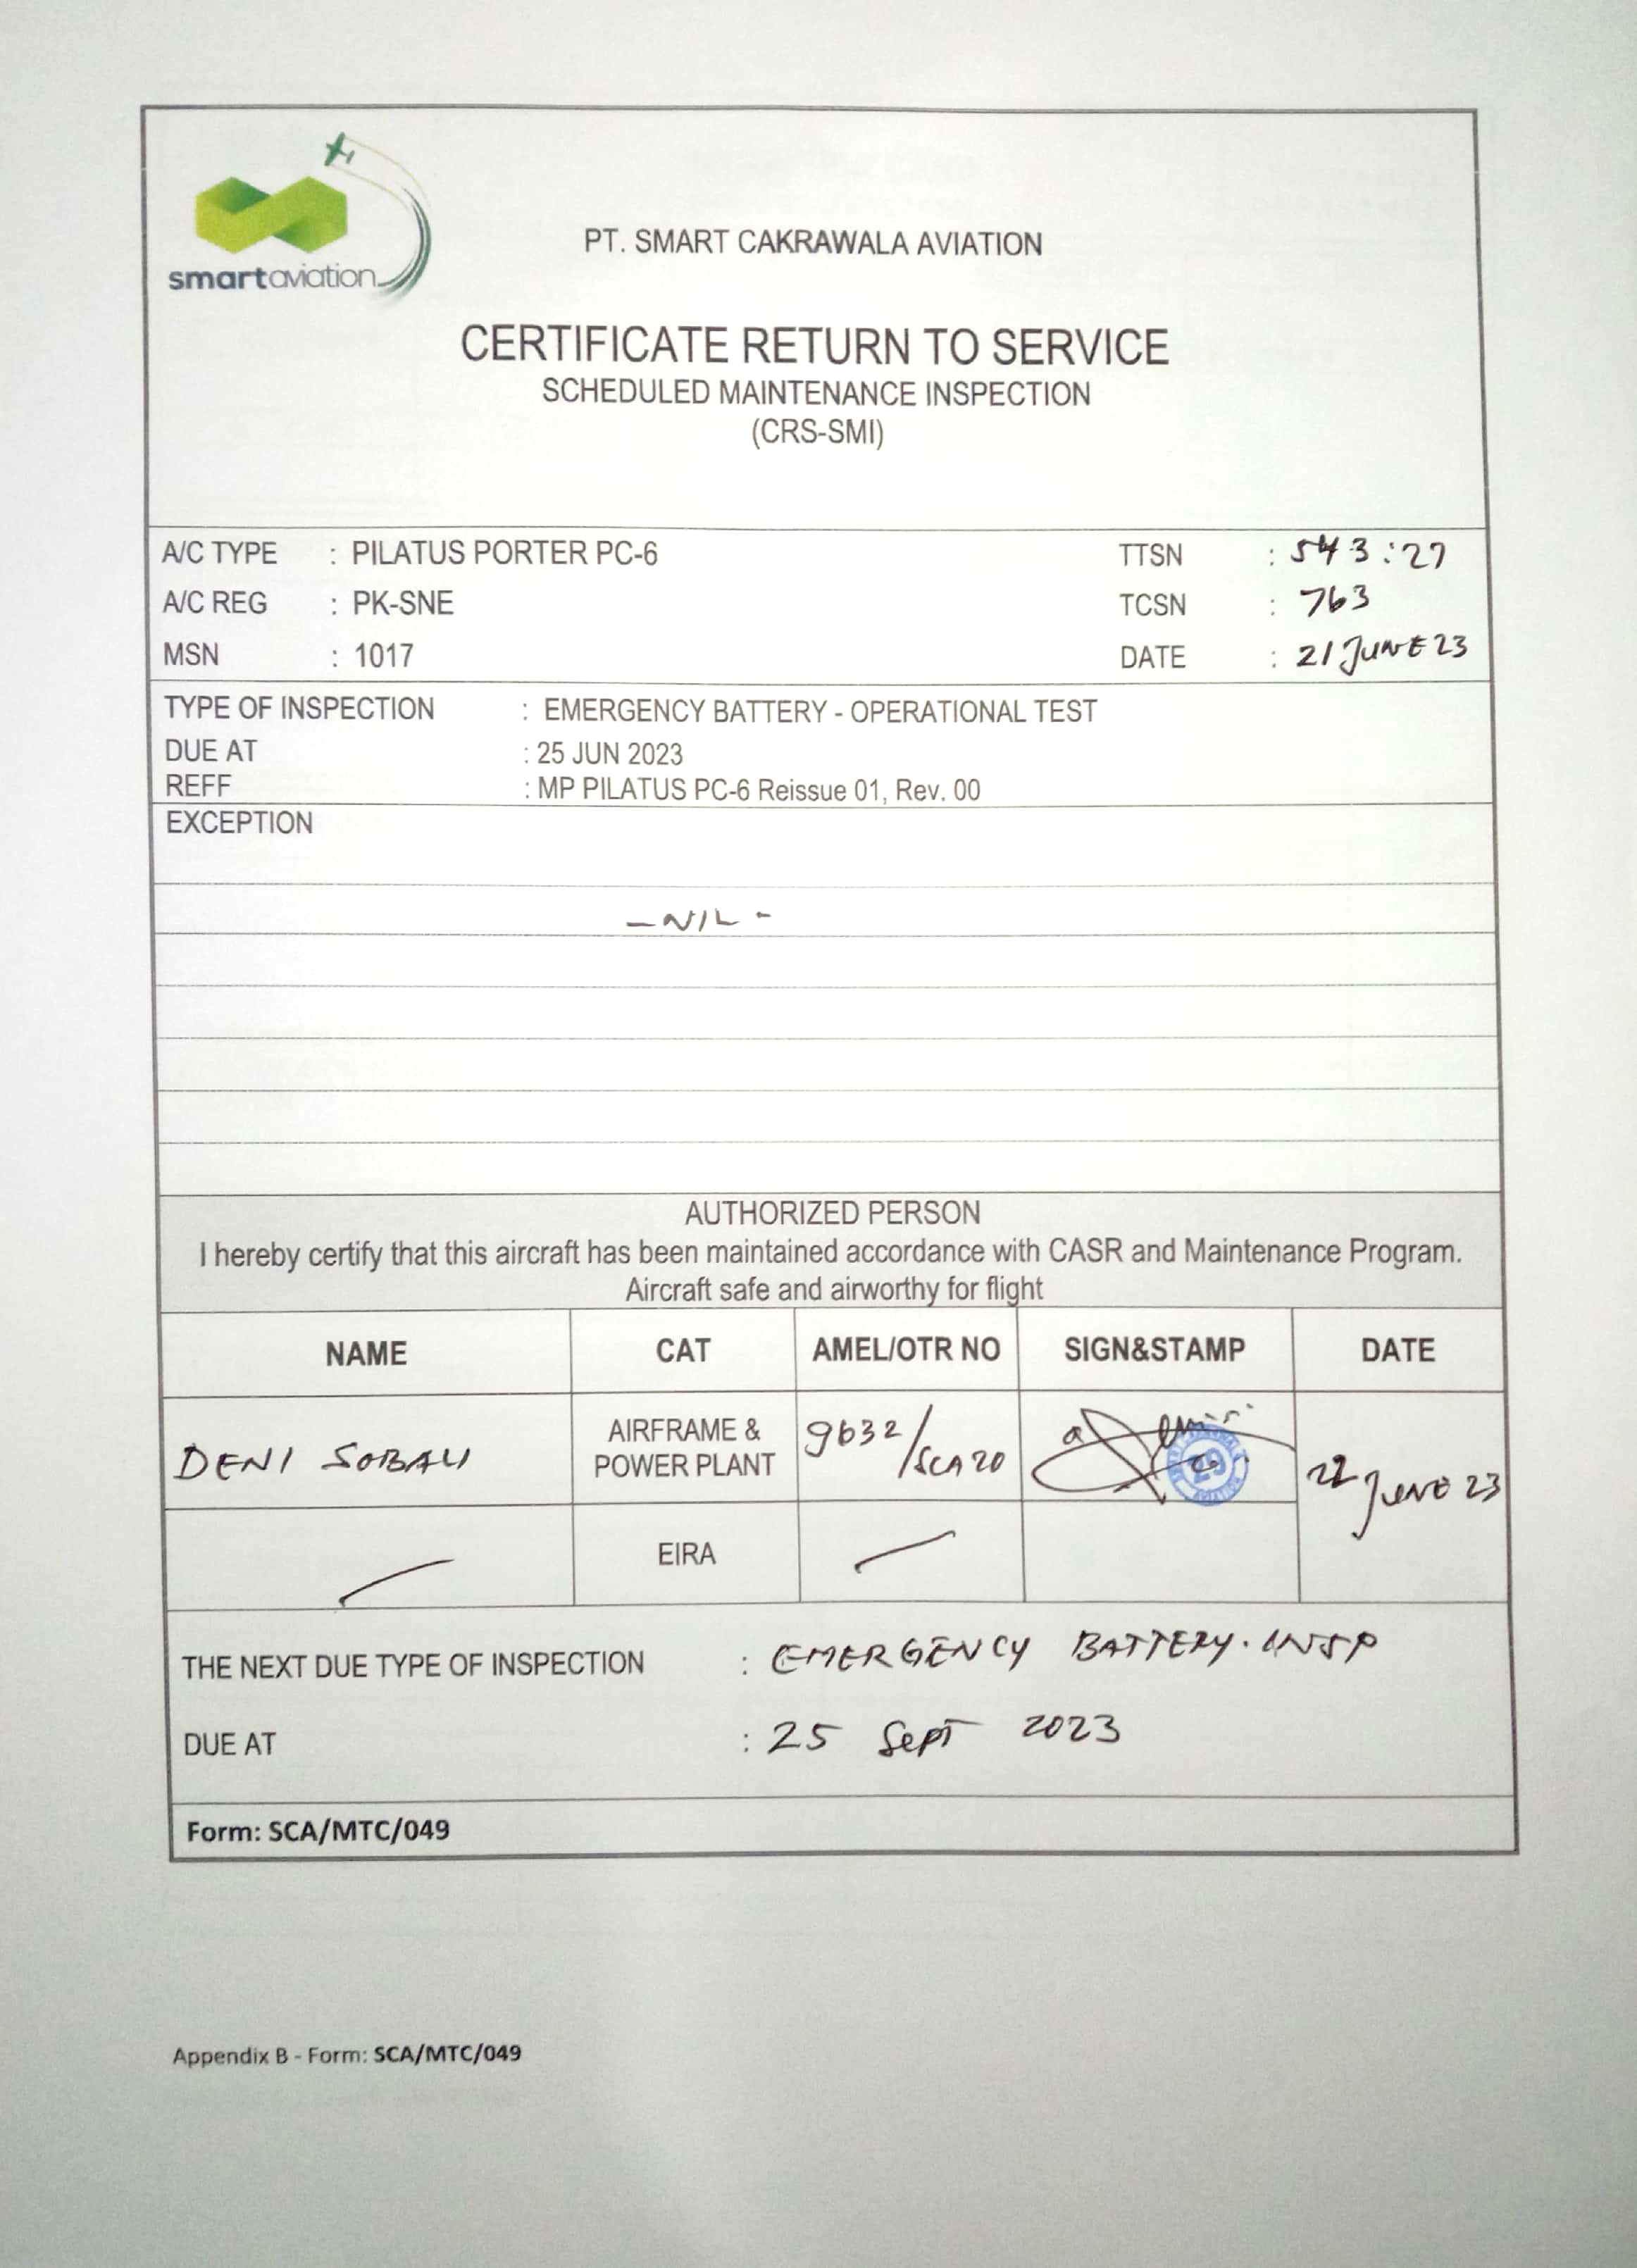 smartaviation
PT. SMART CAKRAWALA AVIATION
CERTIFICATE RETURN TO SERVICE
SCHEDULED MAINTENANCE INSPECTION
(CRS-SMI)
A/C TYPE : PILATUS PORTER PC-6 TTSN : 543:27
A/C REG : PK-SNE TCSN : 763
MSN : 1017 DATE : 21 JUNE 23
TYPE OF INSPECTION : EMERGENCY BATTERY - OPERATIONAL TEST
DUE AT : 25 JUN 2023
REFF : MP PILATUS PC-6 Reissue 01, Rev. 00
EXCEPTION
- NIL -
AUTHORIZED PERSON
I hereby certify that this aircraft has been maintained accordance with CASR and Maintenance Program.
Aircraft safe and airworthy for flight
NAME CAT AMEL/OTR NO SIGN&STAMP DATE
DENI SOBALI AIRFRAME & POWER PLANT 9632/SCA20 29 JUNE 23
EIRA
THE NEXT DUE TYPE OF INSPECTION : EMERGENCY BATTERY. INSP
DUE AT : 25 Sept 2023
Form: SCA/MTC/049
Appendix B - Form: SCA/MTC/049